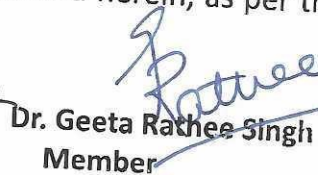 herein, as per th
Rathee
Dr. Geeta Rathee Singh
Member